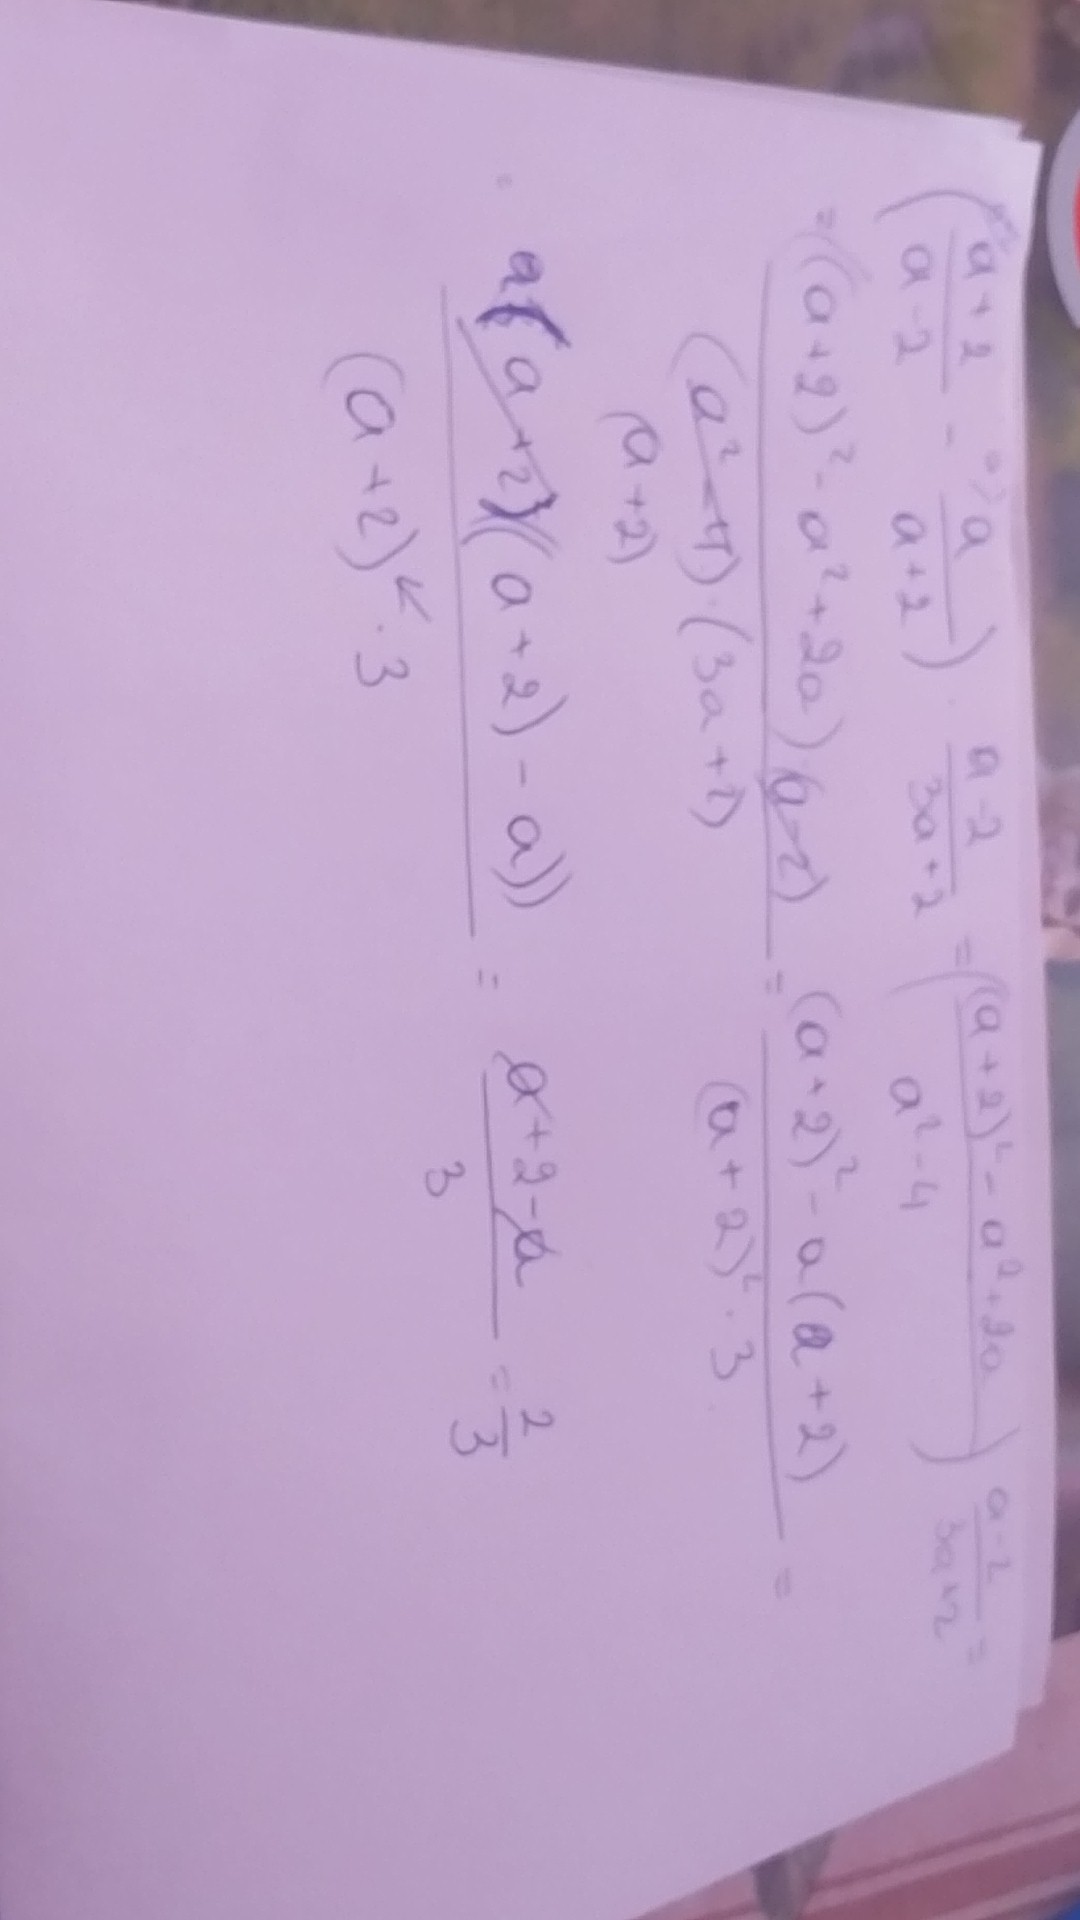 (a+2/a-2 - a/a+2) · a-2/3a+2 = ((a+2)² - a² + 2a / a²-4) a-2/3a+2 =
= ((a+2)² - a² + 2a)·(a-2) / (a²-4)·(3a+2) = (a+2)² - a(a+2) / (a+2)²·3 =
(a+2)
a(a+2)((a+2) - a)) / (a+2)²·3 = a+2-a / 3 = 2/3